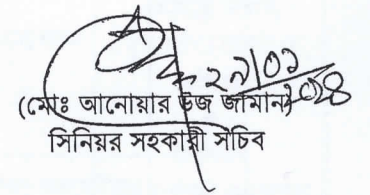 ২৯|০১
২০২৪
(মোঃ আনোয়ার উজ জামান)
সিনিয়র সহকারী সচিব